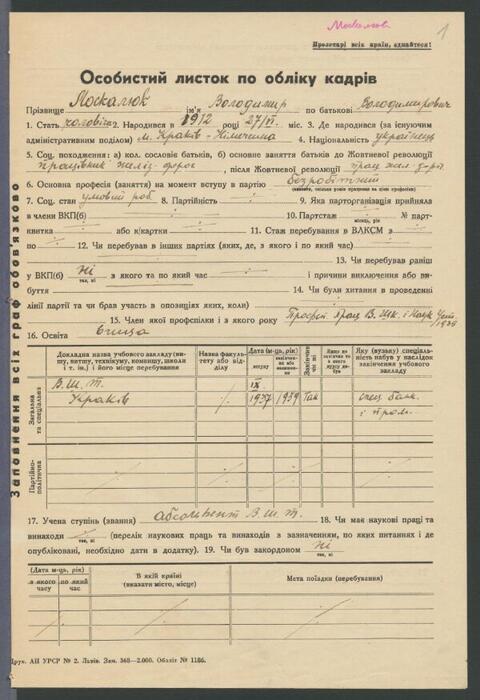 Москалюк
1
Пролетарі всіх країн, єднайтеся!
Особистий листок по обліку кадрів
Прізвище Москалюк ім'я Володимир по батькові Володимирович
1. Стать чоловіча 2. Народився в 1912 році 27/VI міс. 3. Де народився (за існуючим
адміністративним поділом) м. Краків - Німеччина 4. Національність українець
5. Соц. походження: а) кол. сословіє батьків, б) основне заняття батьків до Жовтневої революції
працівник заліз. дорог, після Жовтневої революції прац. жел. дор.
6. Основна професія (заняття) на момент вступу в партію безробітний
(вказати, скільки років працював на цією професією)
7. Соц. стан умовий роб 8. Партійність 9. Яка парторганізація прийняла
в члени ВКП(б) 10. Партстаж місяць, № парт-
квитка або к/картки 11. Стаж перебування в ВЛКСМ з
по 12. Чи перебував в інших партіях (яких, де, з якого і по який час)
13. Чи перебував раніш
у ВКП(б) ні з якого та по який час і причини виключення або ви-
так, ні
буття 14. Чи були хитання в проведенні
лінії партії та чи брав участь в опозиціях яких, коли)
15. Член якої профспілки і з якого року Профсп. прац. В. Шк. і Наук. Уст. 1939
16. Освіта Вища
Докладна назва учбового закладу (ви-
шу, витшу, технікуму, комвишу, школи
і т. ін.) і його місце перебування
Назва факуль-
тету або від-
ділу
Дата (м-ць, рік)
вступу
Закінчив
чи ні
Яку (вузьку) спеціаль-
ність набув у наслідок
закінчення учбового
закладу
Загальна
та спеціальна
В. Ш. Т. IX
Краків 1937 1939 Так спец. банк.
і пром.
Партійно-
політична
17. Учена ступінь (звання) абсольвент В. Ш. Т. 18. Чи має наукові праці та
винаходи (перелік наукових праць та винаходів з зазначенням, по яких питаннях і де
так, ні
опубліковані, необхідно дати в додатку). 19. Чи був закордоном ні
так, ні
(Дата м-ць, рік)
з якого
часу
по який
час
В якій країні
(вказати місто, місце)
Мета поїздки (перебування)
Друк. АН УРСР № 2. Львів. Зам. 348—2.000. Обліт № 1186.
Заповнення всіх граф обов'язково